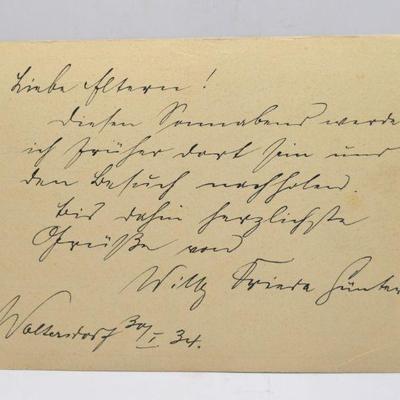 Liebe Eltern!
Diesen Sonnabend werde
ich früher dort sein und
den Besuch nachholen.
Bis dahin herzlichste
Grüße von
Willy Frieda Günter
Woltersdorf 30/I 34.